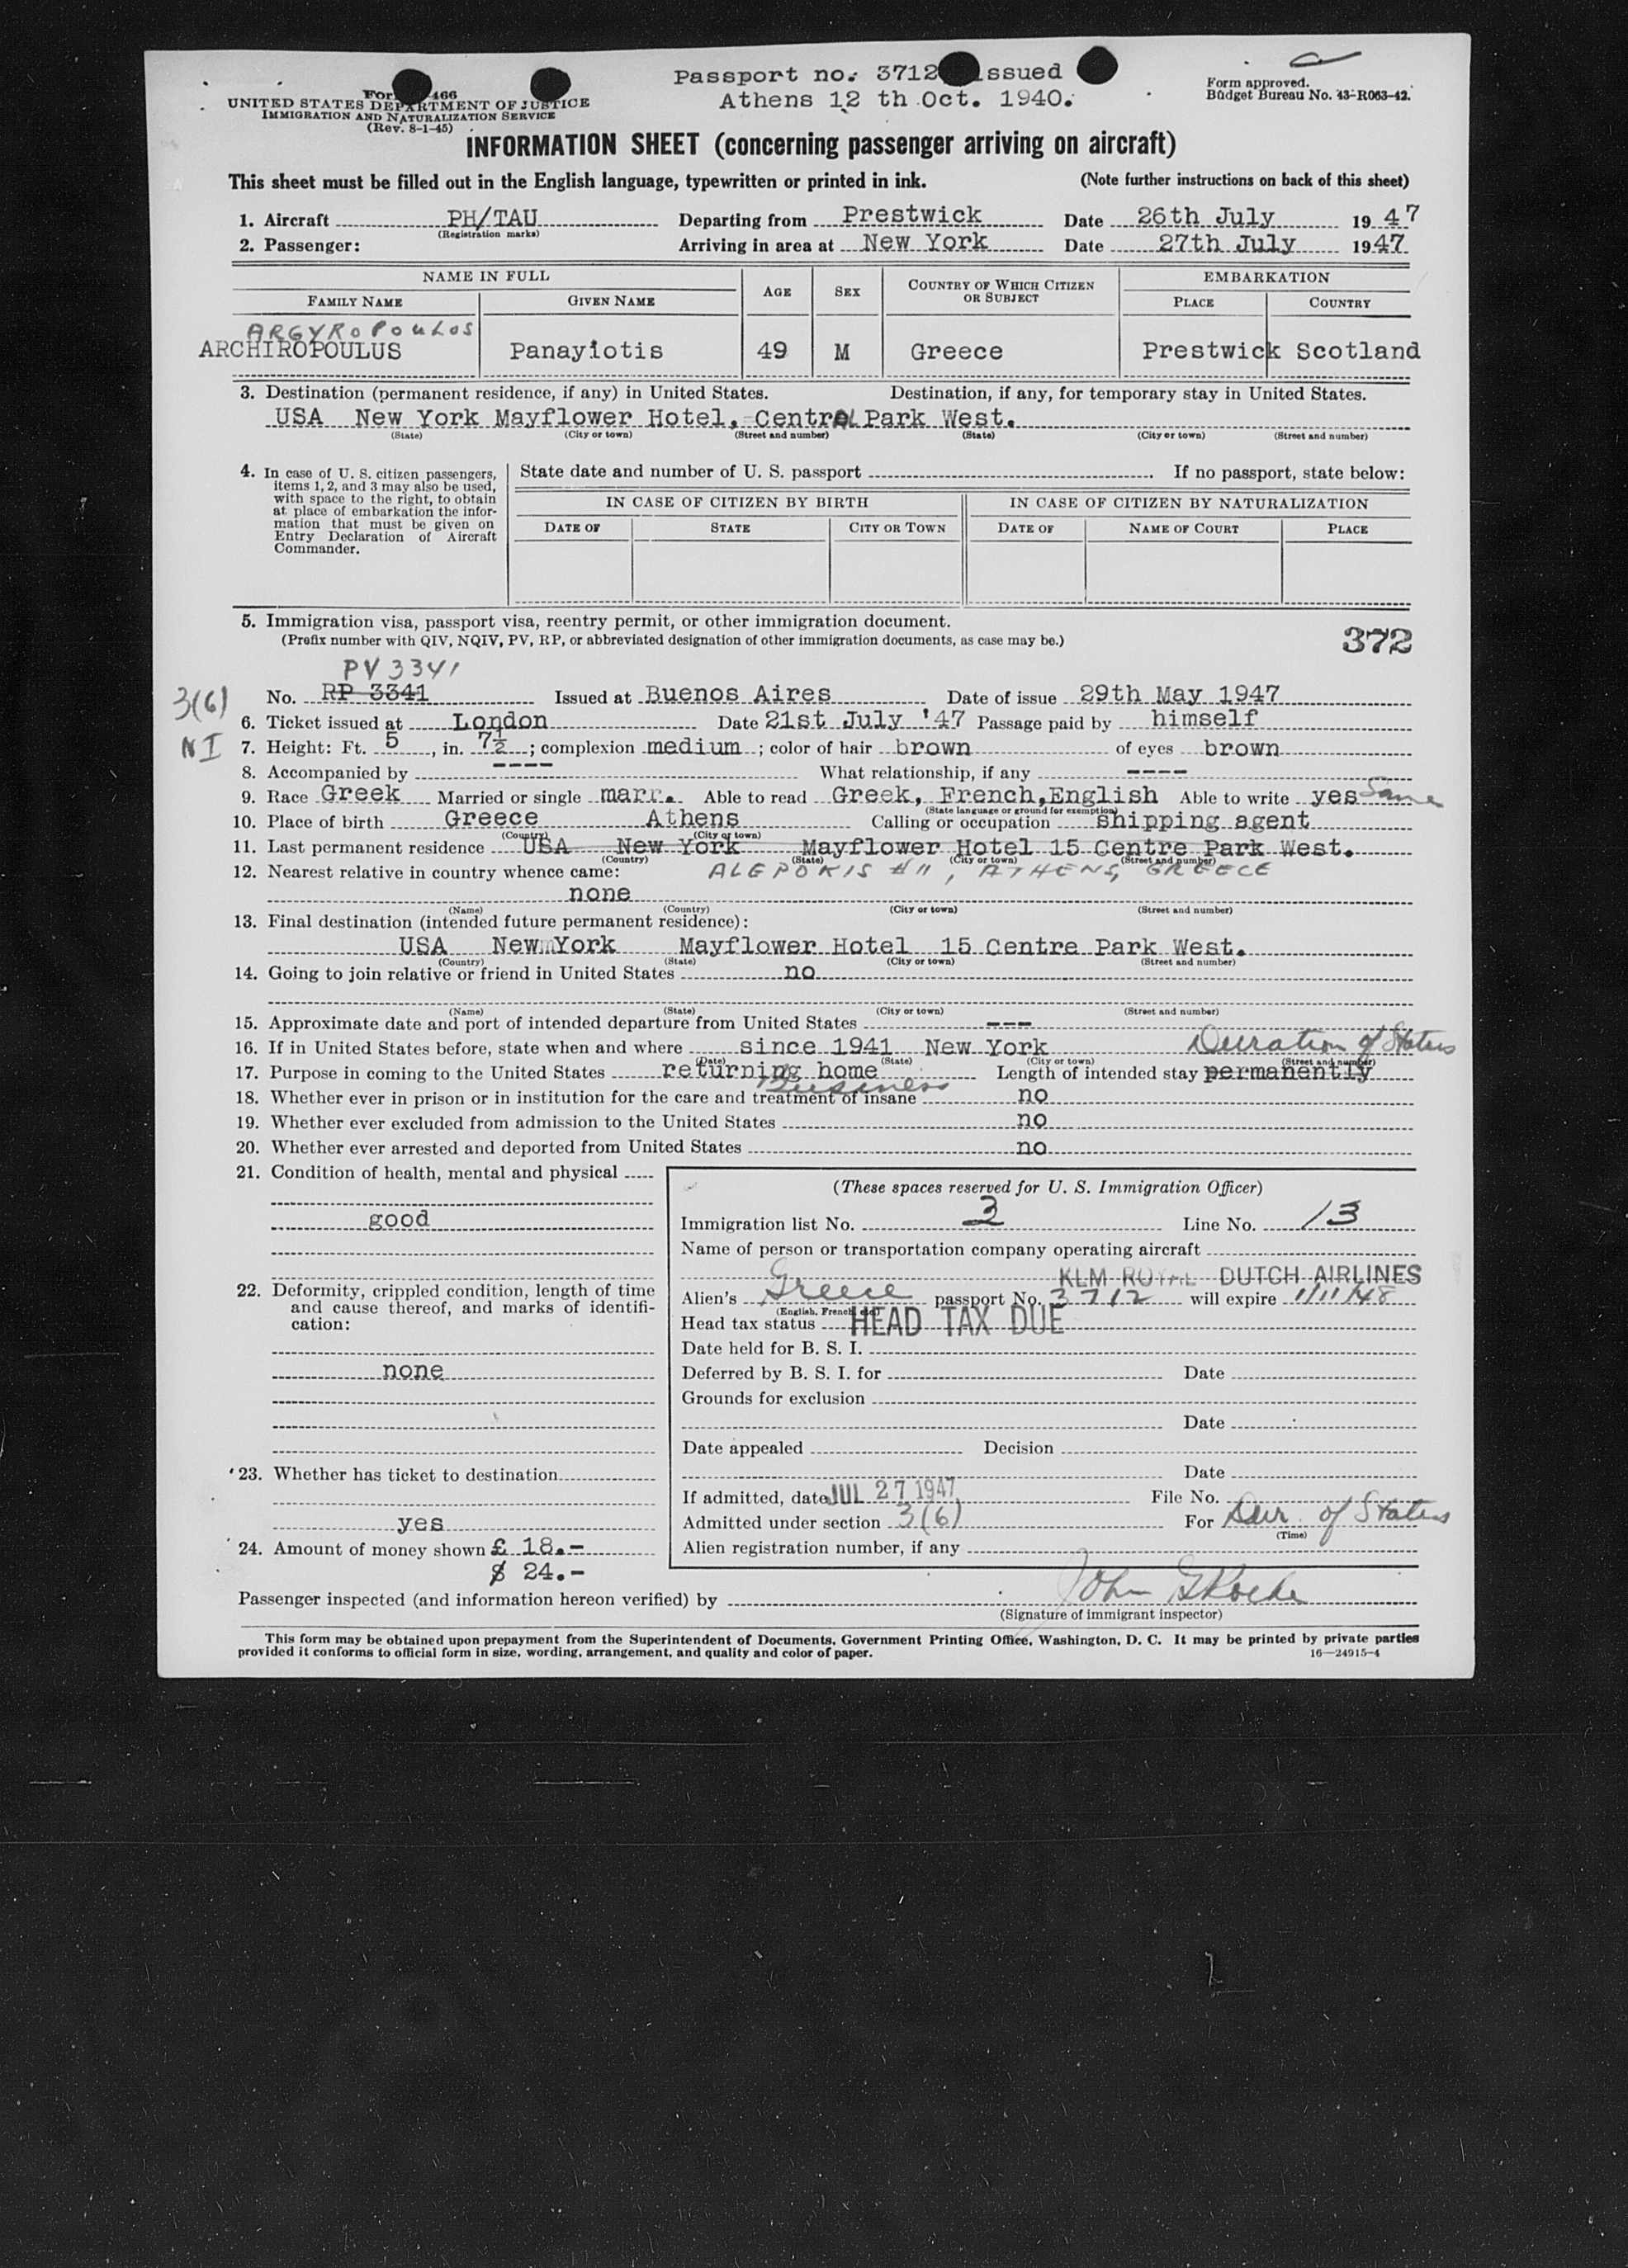 Passport no. 3712 issued
Athens 12 th Oct. 1940.
Form approved.
Budget Bureau No. 43-R063-42.
466
UNITED STATES DEPARTMENT OF JUSTICE
IMMIGRATION AND NATURALIZATION SERVICE
(Rev. 8-1-45)
INFORMATION SHEET (concerning passenger arriving on aircraft)
This sheet must be filled out in the English language, typewritten or printed in ink. (Note further instructions on back of this sheet)
1. Aircraft PH/TAU Departing from Prestwick Date 26th July 1947
(Registration marks)
2. Passenger: Arriving in area at New York Date 27th July 1947
NAME IN FULL AGE SEX COUNTRY OF WHICH CITIZEN OR SUBJECT EMBARKATION
FAMILY NAME GIVEN NAME PLACE COUNTRY
ARGYROPOULOS
ARCHIROPOULUS Panayiotis 49 M Greece Prestwick Scotland
3. Destination (permanent residence, if any) in United States. Destination, if any, for temporary stay in United States.
USA New York Mayflower Hotel, Central Park West.
(State) (City or town) (Street and number) (State) (City or town) (Street and number)
4. In case of U. S. citizen passengers, items 1, 2, and 3 may also be used, with space to the right, to obtain at place of embarkation the information that must be given on Entry Declaration of Aircraft Commander.
State date and number of U. S. passport If no passport, state below:
IN CASE OF CITIZEN BY BIRTH IN CASE OF CITIZEN BY NATURALIZATION
DATE OF STATE CITY OR TOWN DATE OF NAME OF COURT PLACE
5. Immigration visa, passport visa, reentry permit, or other immigration document.
(Prefix number with QIV, NQIV, PV, RP, or abbreviated designation of other immigration documents, as case may be.)
372
PV 3341
3(6)
No. RP 3341 Issued at Buenos Aires Date of issue 29th May 1947
6. Ticket issued at London Date 21st July '47 Passage paid by himself
NI
7. Height: Ft. 5, in. 7½; complexion medium; color of hair brown of eyes brown
8. Accompanied by ---- What relationship, if any ----
9. Race Greek Married or single marr. Able to read Greek, French, English Able to write yes Same
(State language or ground for exemption)
10. Place of birth Greece Athens Calling or occupation shipping agent
(Country) (City or town)
11. Last permanent residence USA New York Mayflower Hotel 15 Centre Park West.
(Country) (State) (City or town) (Street and number)
12. Nearest relative in country whence came: ALEPOKIS #11, ATHENS, GREECE
none
(Name) (Country) (City or town) (Street and number)
13. Final destination (intended future permanent residence):
USA New York Mayflower Hotel 15 Centre Park West.
(Country) (State) (City or town) (Street and number)
14. Going to join relative or friend in United States no
(Name) (State) (City or town) (Street and number)
15. Approximate date and port of intended departure from United States ---
16. If in United States before, state when and where since 1941 New York Duration of Status
(Date) (State) (City or town) (Street and number)
17. Purpose in coming to the United States returning home Length of intended stay permanently
Business
18. Whether ever in prison or in institution for the care and treatment of insane no
19. Whether ever excluded from admission to the United States no
20. Whether ever arrested and deported from United States no
21. Condition of health, mental and physical
good
22. Deformity, crippled condition, length of time and cause thereof, and marks of identification:
none
23. Whether has ticket to destination
yes
24. Amount of money shown £ 18.-
$ 24.-
(These spaces reserved for U. S. Immigration Officer)
Immigration list No. 3 Line No. 13
Name of person or transportation company operating aircraft
KLM ROYAL DUTCH AIRLINES
Alien's Greece passport No. 3712 will expire 1/11/48
(English, French, etc.)
Head tax status HEAD TAX DUE
Date held for B. S. I.
Deferred by B. S. I. for Date
Grounds for exclusion
Date
Date appealed Decision
Date
If admitted, date JUL 27 1947 File No.
Admitted under section 3(6) For Dur. of Status
(Time)
Alien registration number, if any
Passenger inspected (and information hereon verified) by John
(Signature of immigrant inspector)
This form may be obtained upon prepayment from the Superintendent of Documents, Government Printing Office, Washington, D. C. It may be printed by private parties
provided it conforms to official form in size, wording, arrangement, and quality and color of paper. 16—24915-4